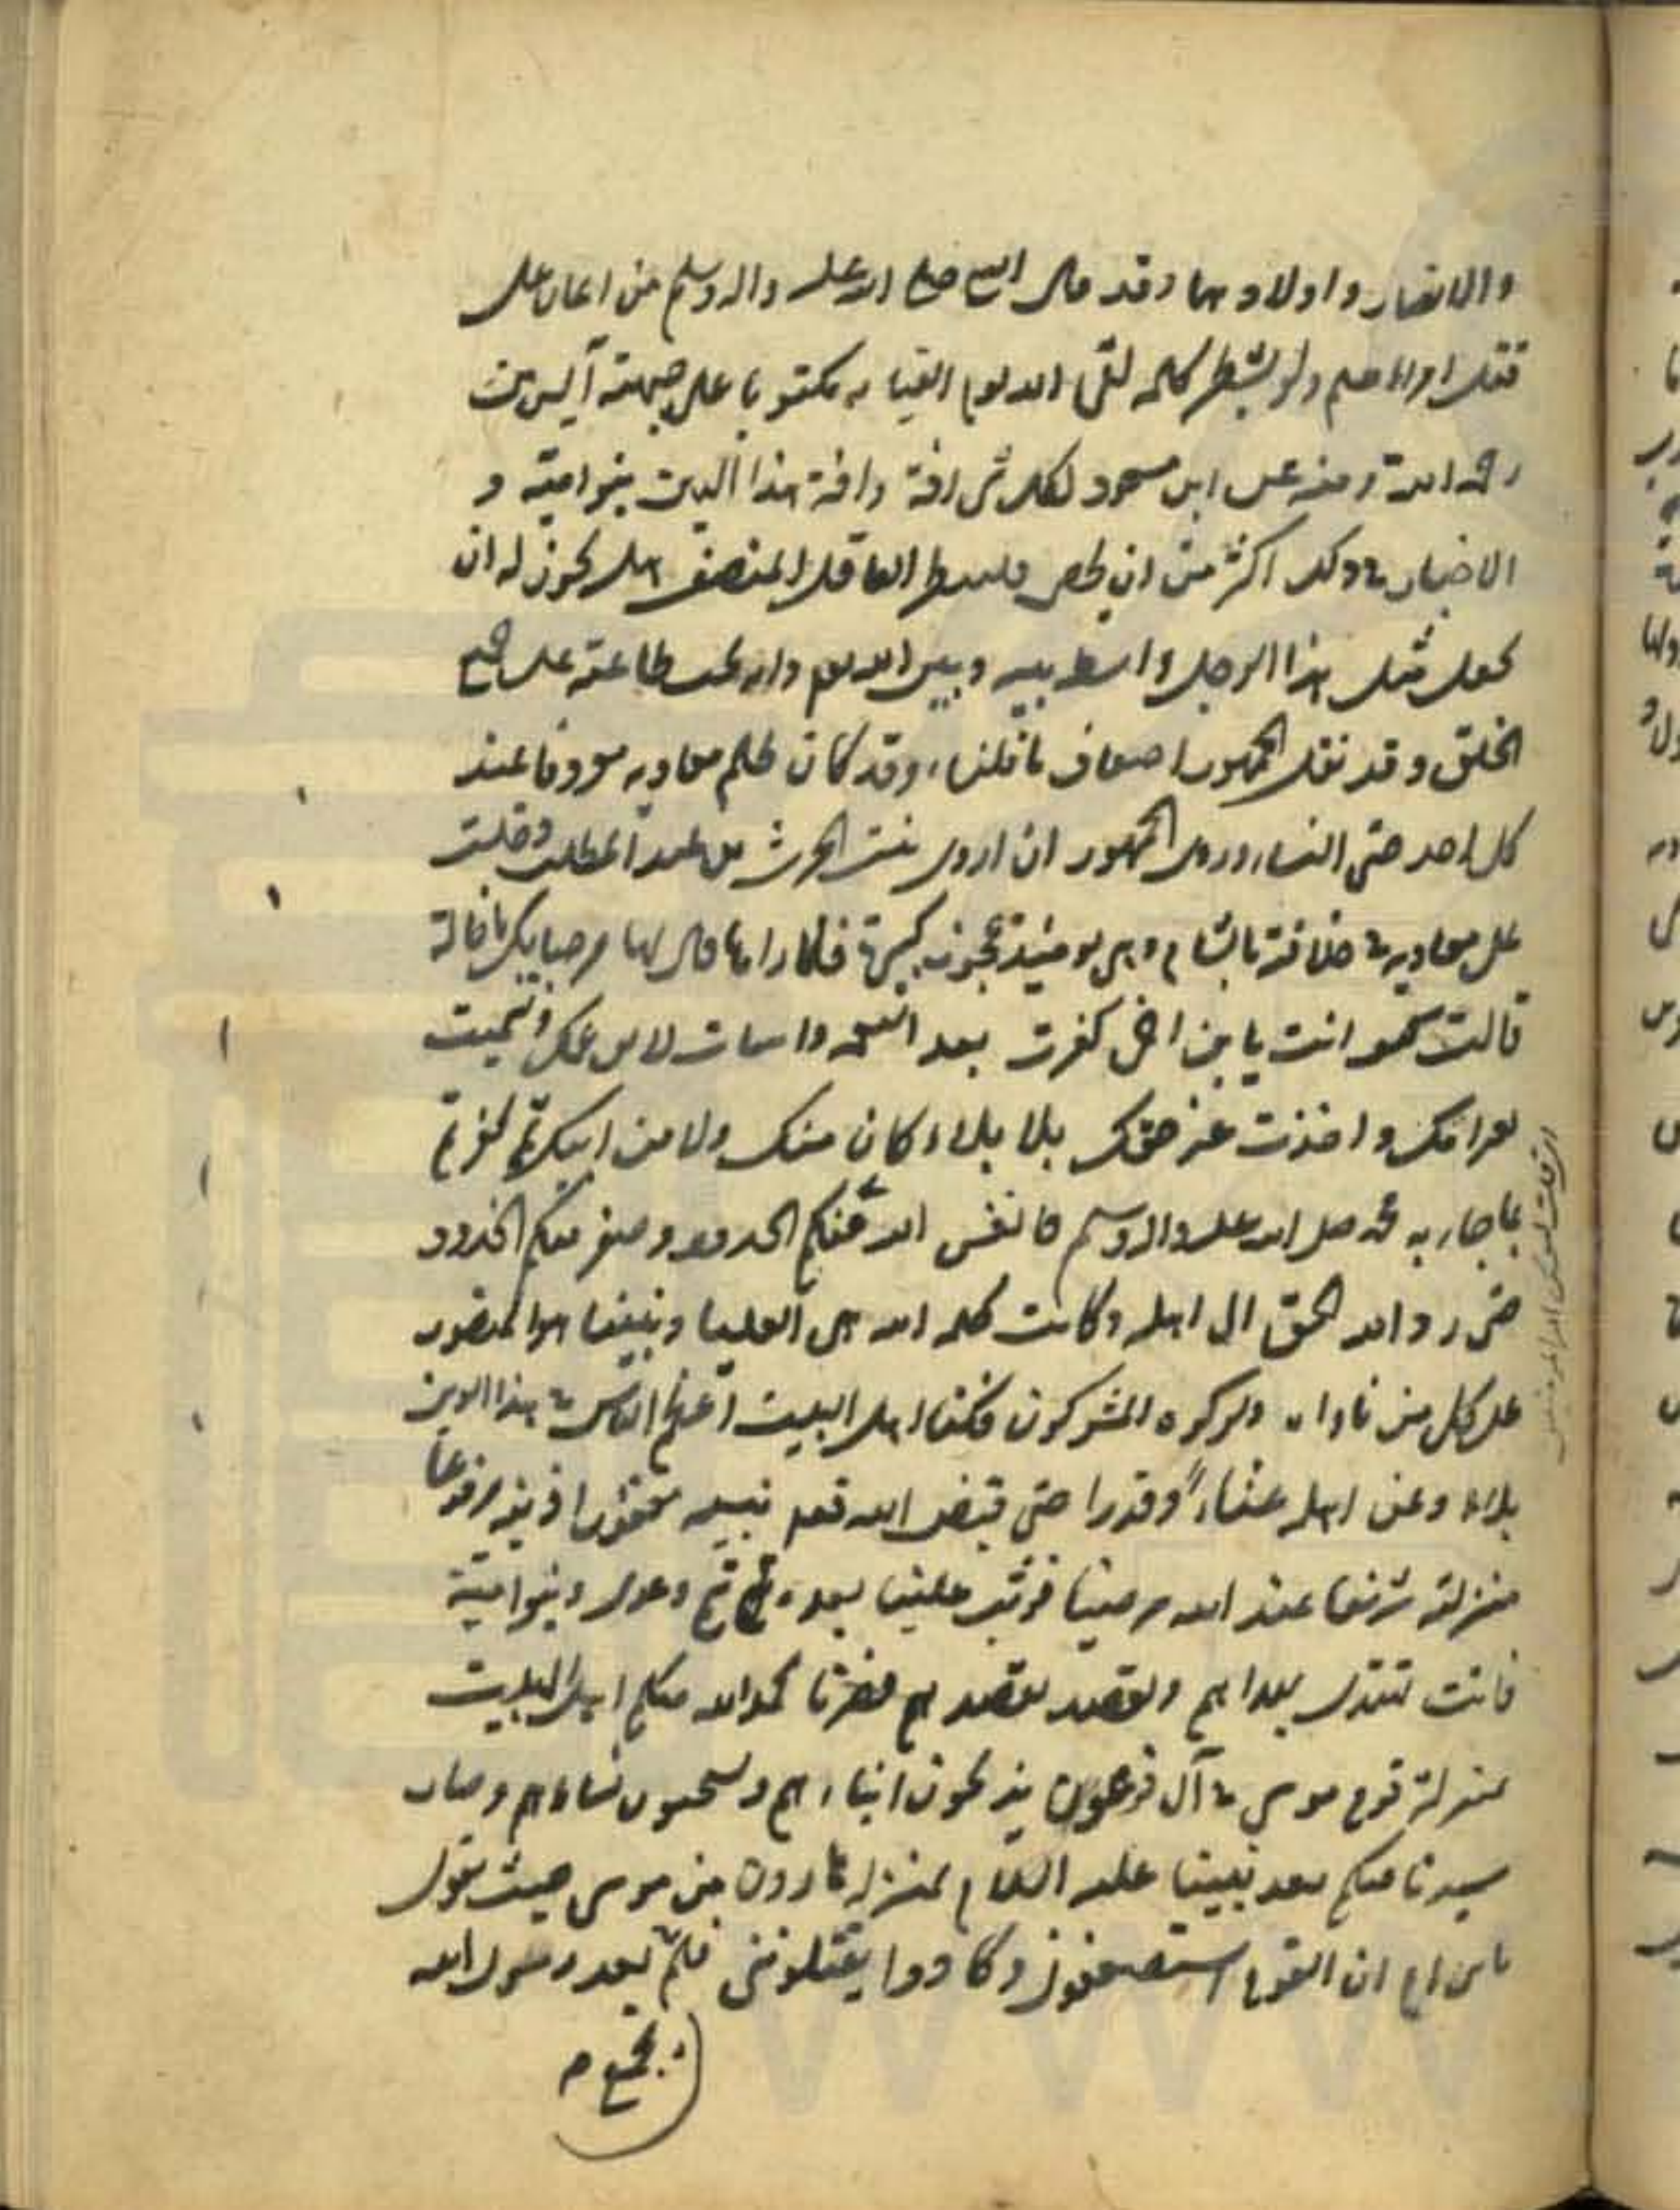 والانصار واولادهما وقد قال النبي صلى الله عليه واله وسلم من اعان على
قتل امرء مسلم ولو بشطر كلمة لقى الله يوم القيامه مكتوبا على جبهته آيس من
رحمة الله وعن ابن مسعود لكل شى افة وافة هذا الدين بنو امية و
الاخبار فى ذلك اكثر من ان يحصى فلينظر العاقل المنصف هل يجوز له ان
يجعل مثل هذا الرجل واسطه بينه وبين الله تعم وانه يجب طاعته على جميع
الخلق وقد نقل الجمهور اضعاف ما قلناه وقد كان ظلم معاويه معروفا عند
كل احد حتى النساء وروى الجمهور ان اروى بنت الحرث بن عبد المطلب دخلت
على معاويه فى خلافته بالشام وهى يومئذ عجوزه كبيرة فلما راها قال لها مرحبا بك يا خالة
قالت كيف انت يا بن اخى كفرت بعد النعمه واسات لابن عمك وتسميت
بغير اسمك واخذت غير حقك بلا بلاء كان منك ولا من ابيك ثم كفرتم
بما جاء به محمد صلى الله عليه واله وسلم فاتعس الله منكم الجدود وصعر منكم الخدود
حتى رد الله الحق الى اهله وكانت كلمه الله هى العليا ونبينا هو المنصور
على كل من ناواه ولو كره المشركون فكنا اهل البيت اعظم الناس فى هذا الدين
بلاء وعن اهله عناء وقدرا حتى قبض الله تعم نبيه مغفورا ذنبه مرفوعا
منزلته شريفا عند الله مرضيا فوثب علينا بعده تيم وعدى وبنو امية
فانت تهتدى بهداهم وتقصد بقصدهم فصرنا بحمد الله منكم اهل البيت
بمنزلة قوم موسى فى آل فرعون يذبحون ابناءهم ويستحيون نساءهم وصار
سيدنا منكم بعد نبينا عليه السلام بمنزله هارون من موسى حيث يقول
يا بن ام ان القوم استضعفونى وكادوا يقتلوننى فلم بعد رسول الله
يجمع